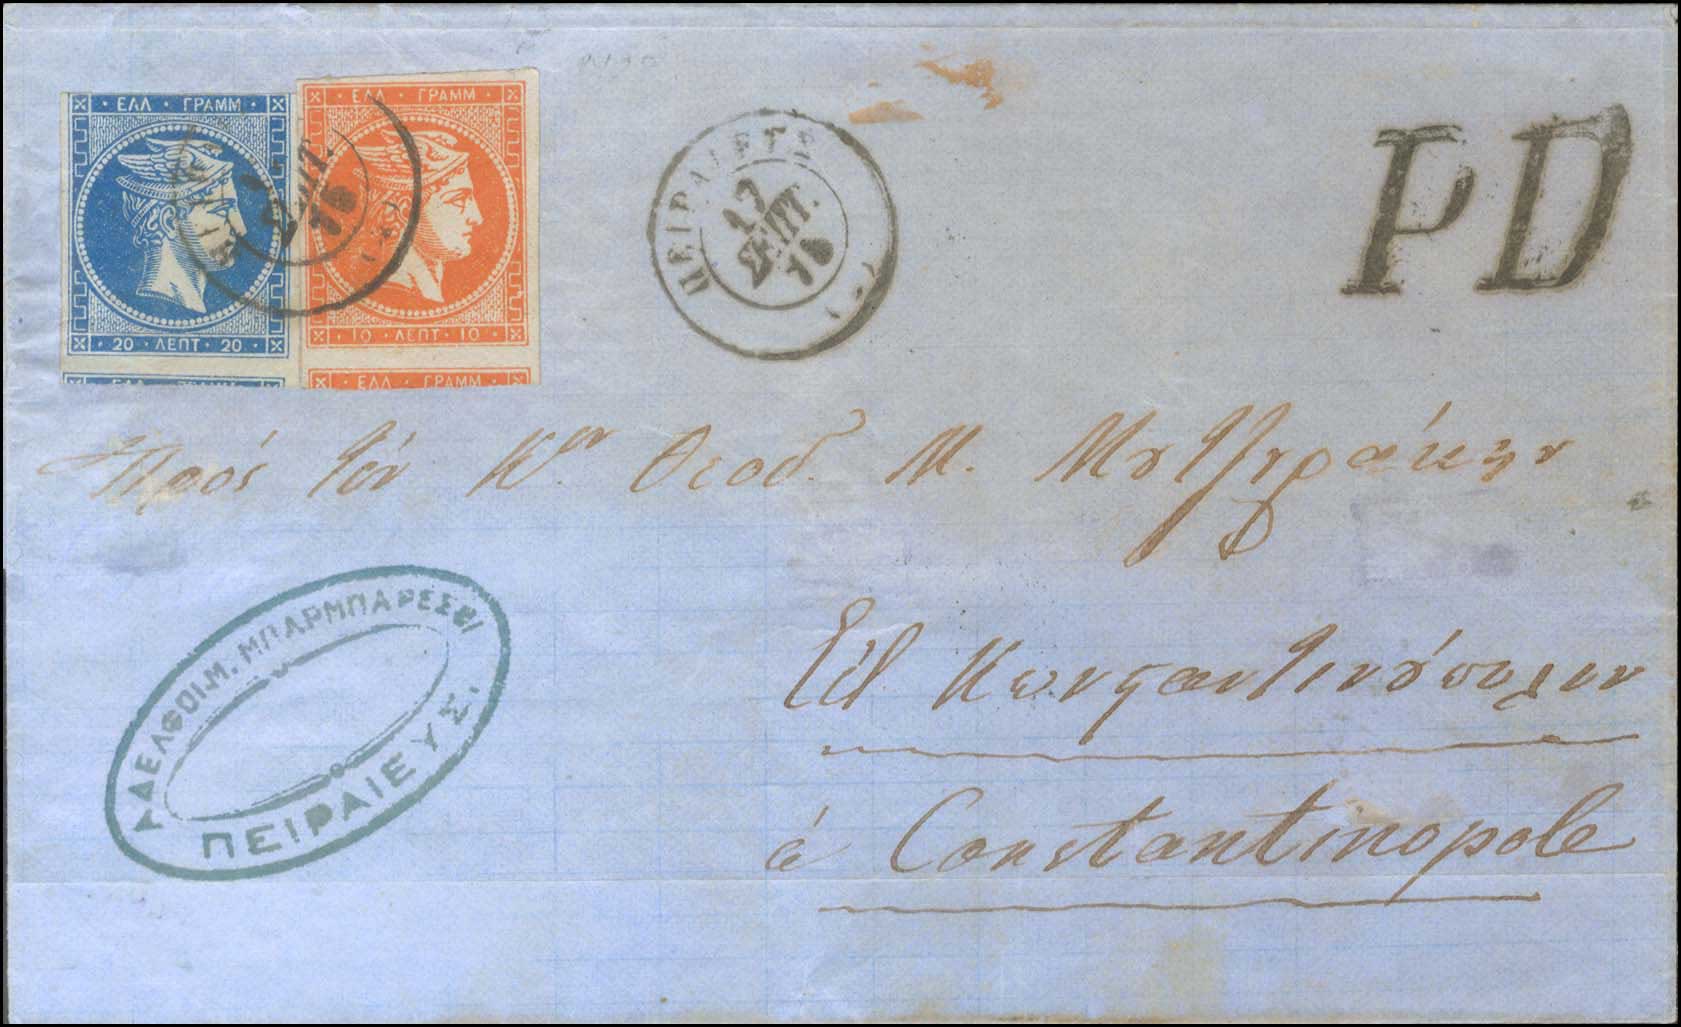 ΕΛΛ · ΓΡΑΜΜ
20 · ΛΕΠΤ · 20
ΕΛΛ · ΓΡΑΜΜ
ΕΛΛ · ΓΡΑΜΜ
10 · ΛΕΠΤ · 10
ΕΛΛ · ΓΡΑΜΜ
ΣΕΠΤ.
ΠΕΙΡΑΙΕΥΣ
17
ΣΕΠΤ.
PD
Πρὸς τὸν Κον. Θεοδ. Μ.
Εἰς Κωνσταντινούπολιν
à Constantinople
ΑΔΕΛΦΟΙ.Μ. ΜΠΑΡΜΠΑΡΕΣΣΟΙ
ΠΕΙΡΑΙΕΥΣ.